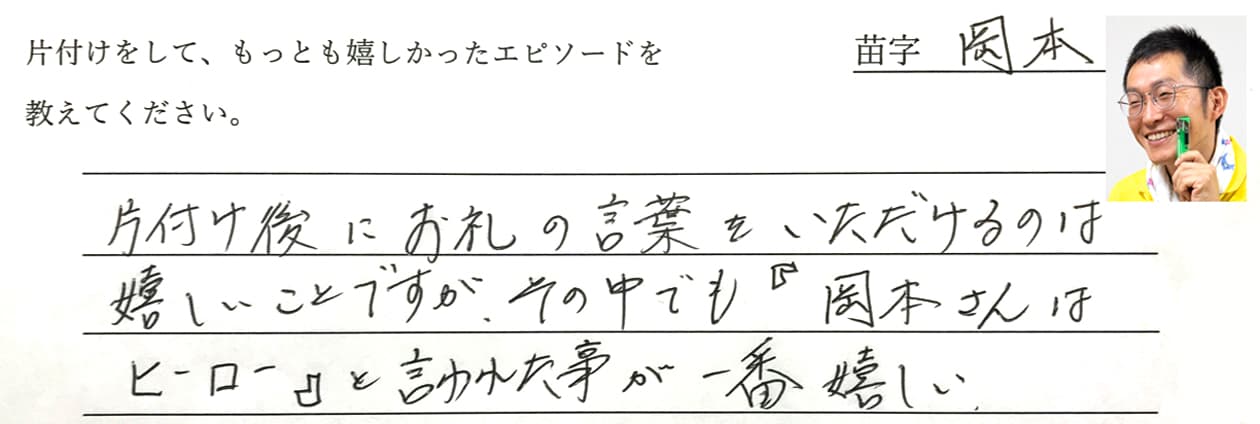 片付けをして、もっとも嬉しかったエピソードを
教えてください。
苗字 岡本
片付け後にお礼の言葉をいただけるのは
嬉しいことですが、その中でも『岡本さんは
ヒーロー』と言われた事が一番嬉しい。